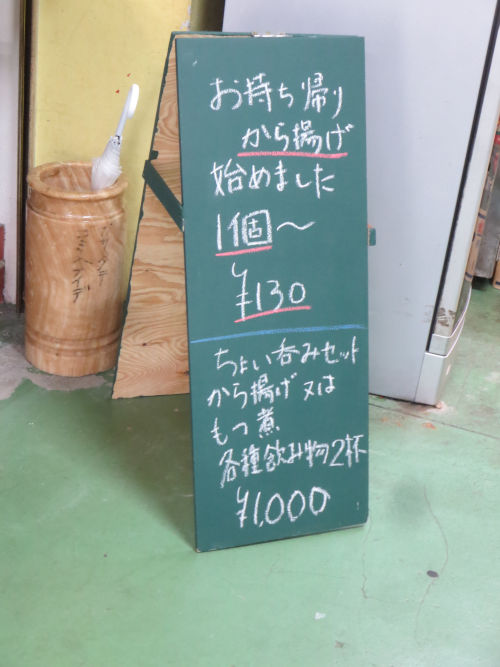 お持ち帰り
から揚げ
始めました
1個～
¥130
ちょい呑みセット
から揚げ又は
もつ煮
各種飲み物2杯
¥1,000